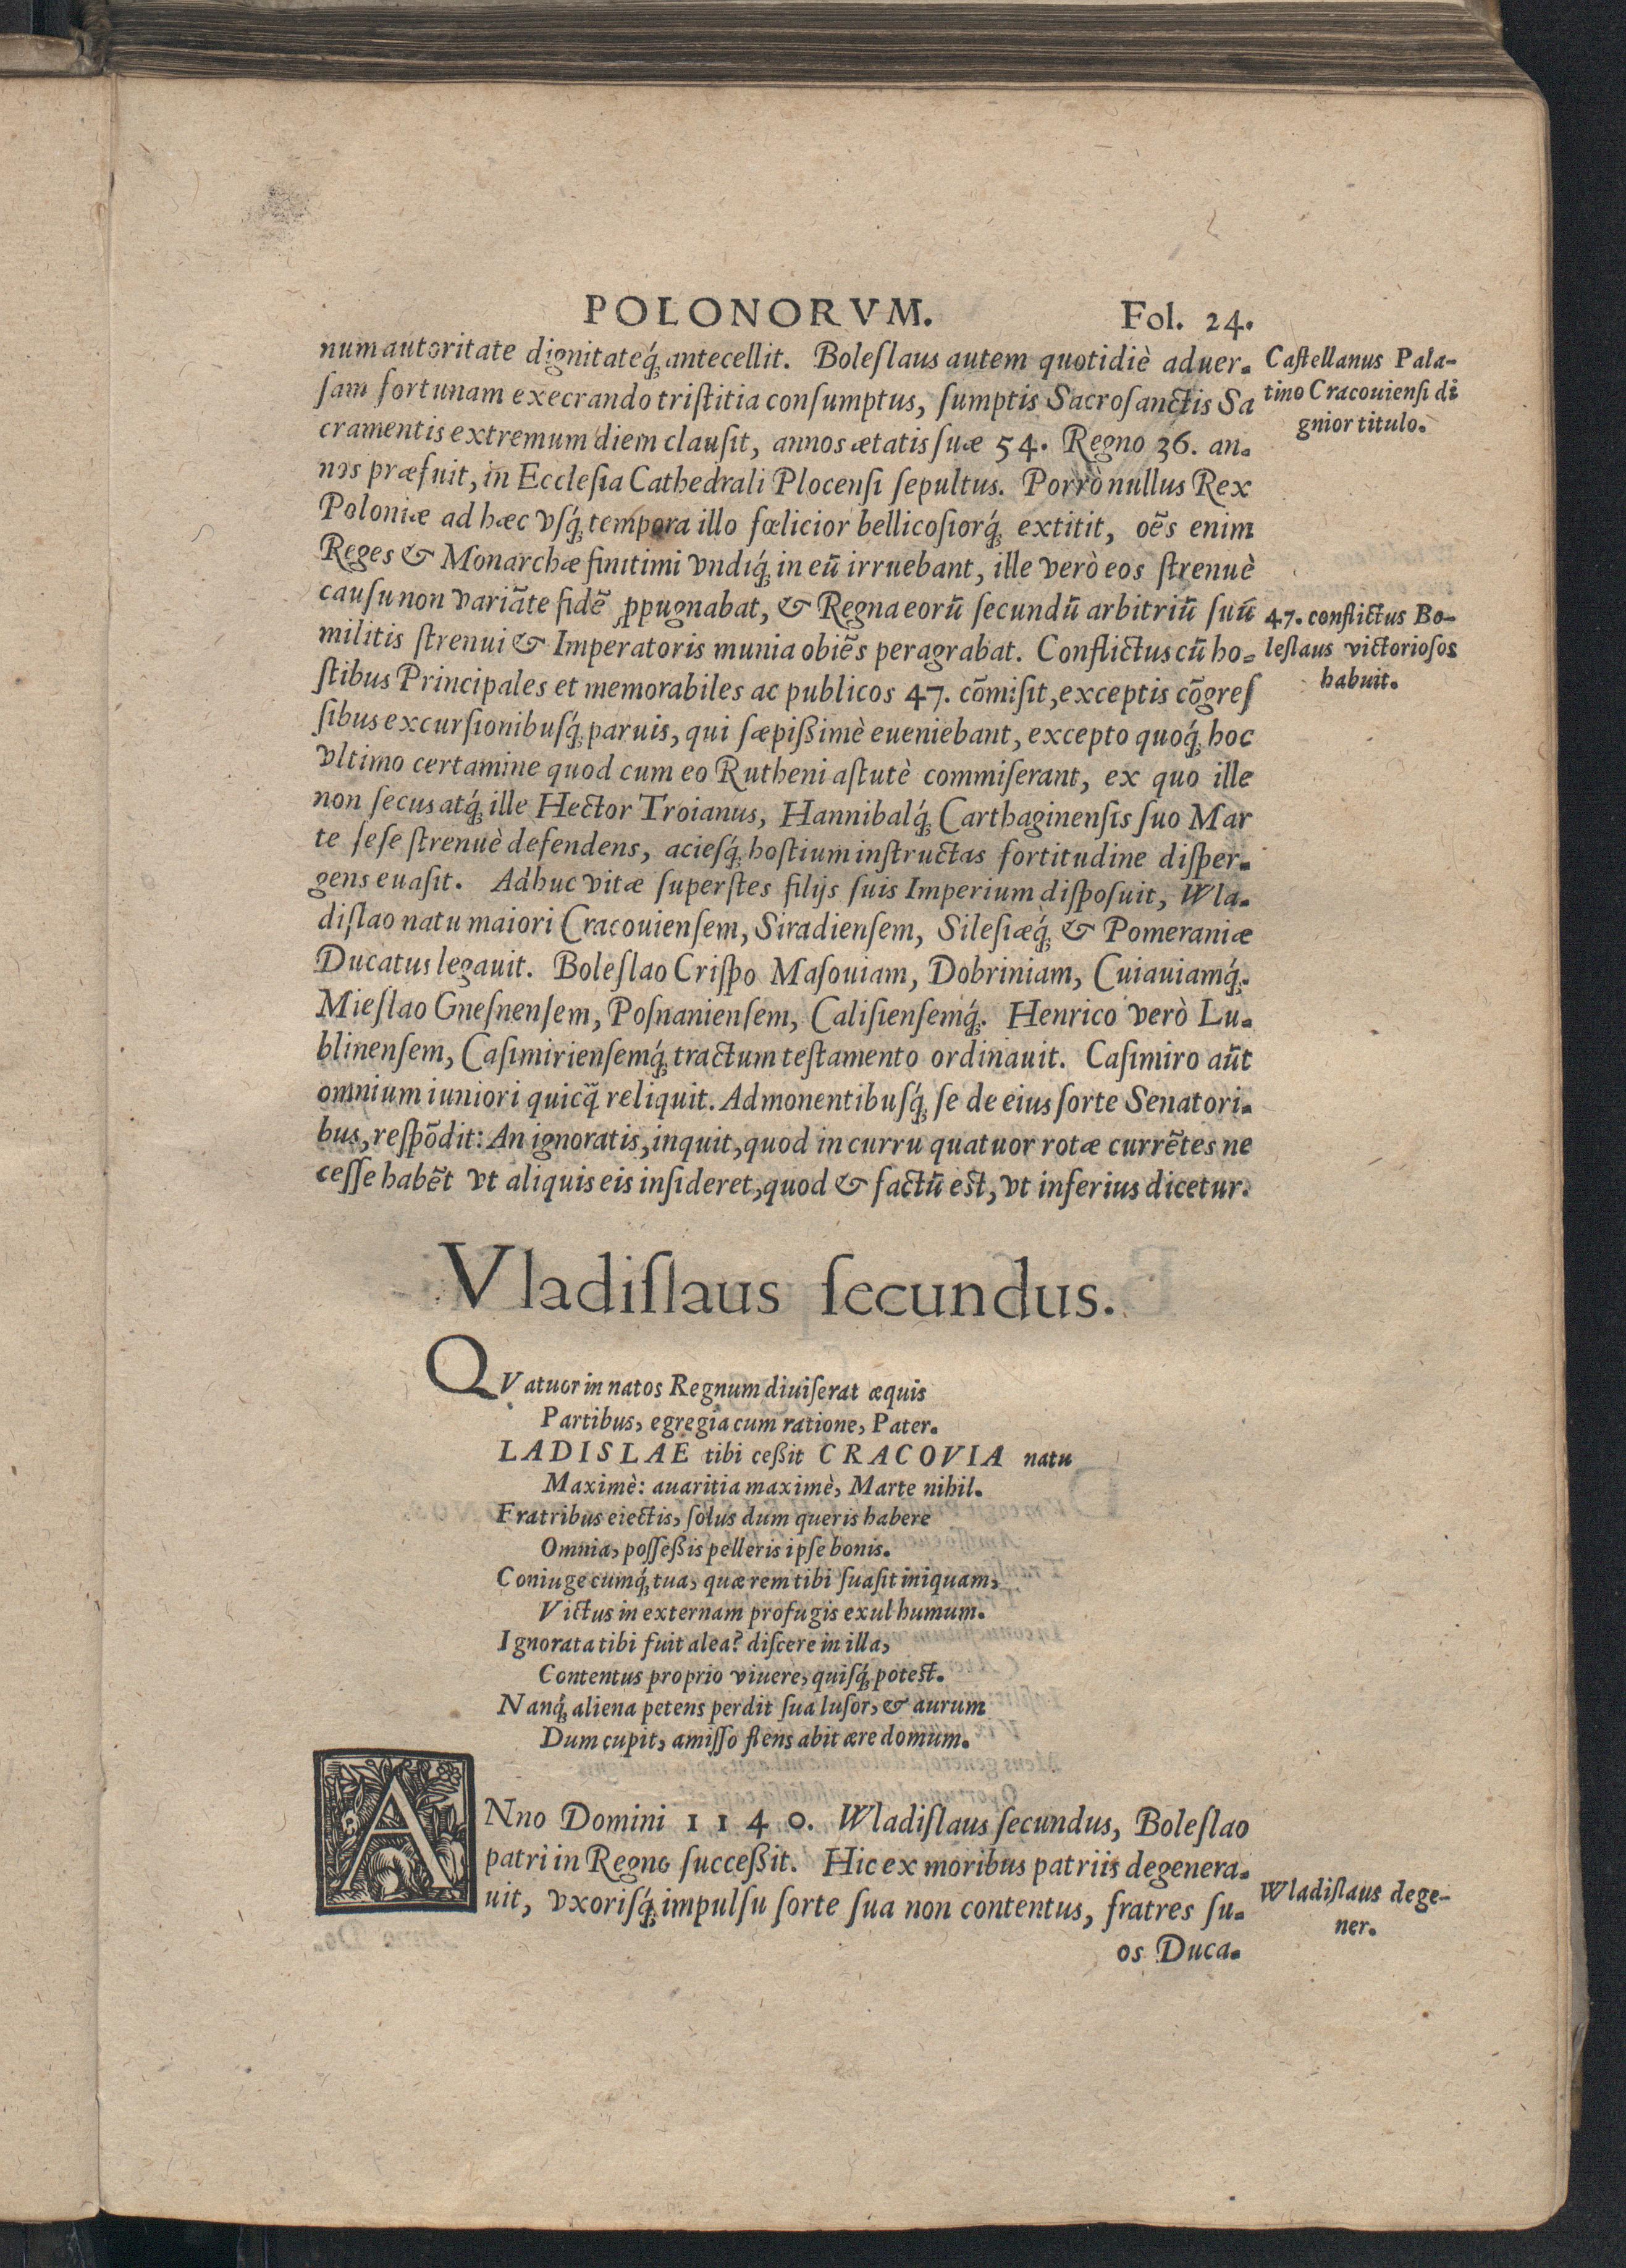 POLONORVM. Fol. 24.
num autoritate dignitateq́; antecellit. Boleſlaus autem quotidiè aduer-
ſam fortunam execrando triſtitia conſumptus, ſumptis Sacroſanctis Sa
cramentis extremum diem clauſit, annos ætatis ſuæ 54. Regno 36. an-
nos præfuit, in Eccleſia Cathedrali Plocenſi ſepultus. Porrò nullus Rex
Poloniæ ad hæc vſq́; tempora illo fœlicior bellicoſiorq́; extitit, oẽs enim
Reges & Monarchæ finitimi vndiq́; in eũ irruebant, ille verò eos ſtrenuè
cauſu non variãte fidẽ ꝓpugnabat, & Regna eorũ ſecundũ arbitriũ ſuũ
militis ſtrenui & Imperatoris munia obiẽs peragrabat. Conflictus cũ ho-
ſtibus Principales et memorabiles ac publicos 47. cõmiſit, exceptis cõgreſ
ſibus excurſionibuſq́; paruis, qui ſæpißimè eueniebant, excepto quoq́; hoc
vltimo certamine quod cum eo Rutheni aſtutè commiſerant, ex quo ille
non ſecus atq́; ille Hector Troianus, Hannibalq́; Carthaginenſis ſuo Mar
te ſeſe ſtrenuè defendens, acieſq́; hoſtium inſtructas fortitudine diſper-
gens euaſit. Adhuc vitæ ſuperſtes filijs ſuis Imperium diſpoſuit, Wla-
diſlao natu maiori Cracouienſem, Siradienſem, Sileſiæq́; & Pomeraniæ
Ducatus legauit. Boleſlao Criſpo Maſouiam, Dobriniam, Cuiauiamq́;.
Mieſlao Gneſnenſem, Poſnanienſem, Caliſienſemq́;. Henrico verò Lu-
blinenſem, Caſimirienſemq́; tractum teſtamento ordinauit. Caſimiro aũt
omnium iuniori quicq̃ reliquit. Admonentibuſq́; ſe de eius ſorte Senatori-
bus, reſpõdit: An ignoratis, inquit, quod in curru quatuor rotæ currẽtes ne
ceſſe habẽt vt aliquis eis inſideret, quod & factũ est, vt inferius dicetur.
Caſtellanus Pala-
tino Cracouienſi di
gnior titulo.
47. conflictus Bo-
leſlaus victorioſos
habuit.
Vladiſlaus ſecundus.
QVatuor in natos Regnum diuiſerat æquis
Partibus, egregia cum ratione, Pater.
LADISLAE tibi ceßit CRACOVIA natu
Maximè: auaritia maximè, Marte nihil.
Fratribus eiectis, ſolus dum queris habere
Omnia, poſſeßis pelleris ipſe bonis.
Coniuge cumq́; tua, quæ rem tibi ſuaſit iniquam,
Victus in externam profugis exul humum.
Ignorata tibi fuit alea? diſcere in illa,
Contentus proprio viuere, quiſq́; potest.
Nanq́; aliena petens perdit ſua luſor, & aurum
Dum cupit, amiſſo flens abit ære domum.
ANno Domini 1140. Wladiſlaus ſecundus, Boleſlao
patri in Regno ſucceßit. Hic ex moribus patriis degenera-
uit, vxoriſq́; impulſu ſorte ſua non contentus, fratres ſu-
os Duca-
Wladiſlaus dege-
ner.